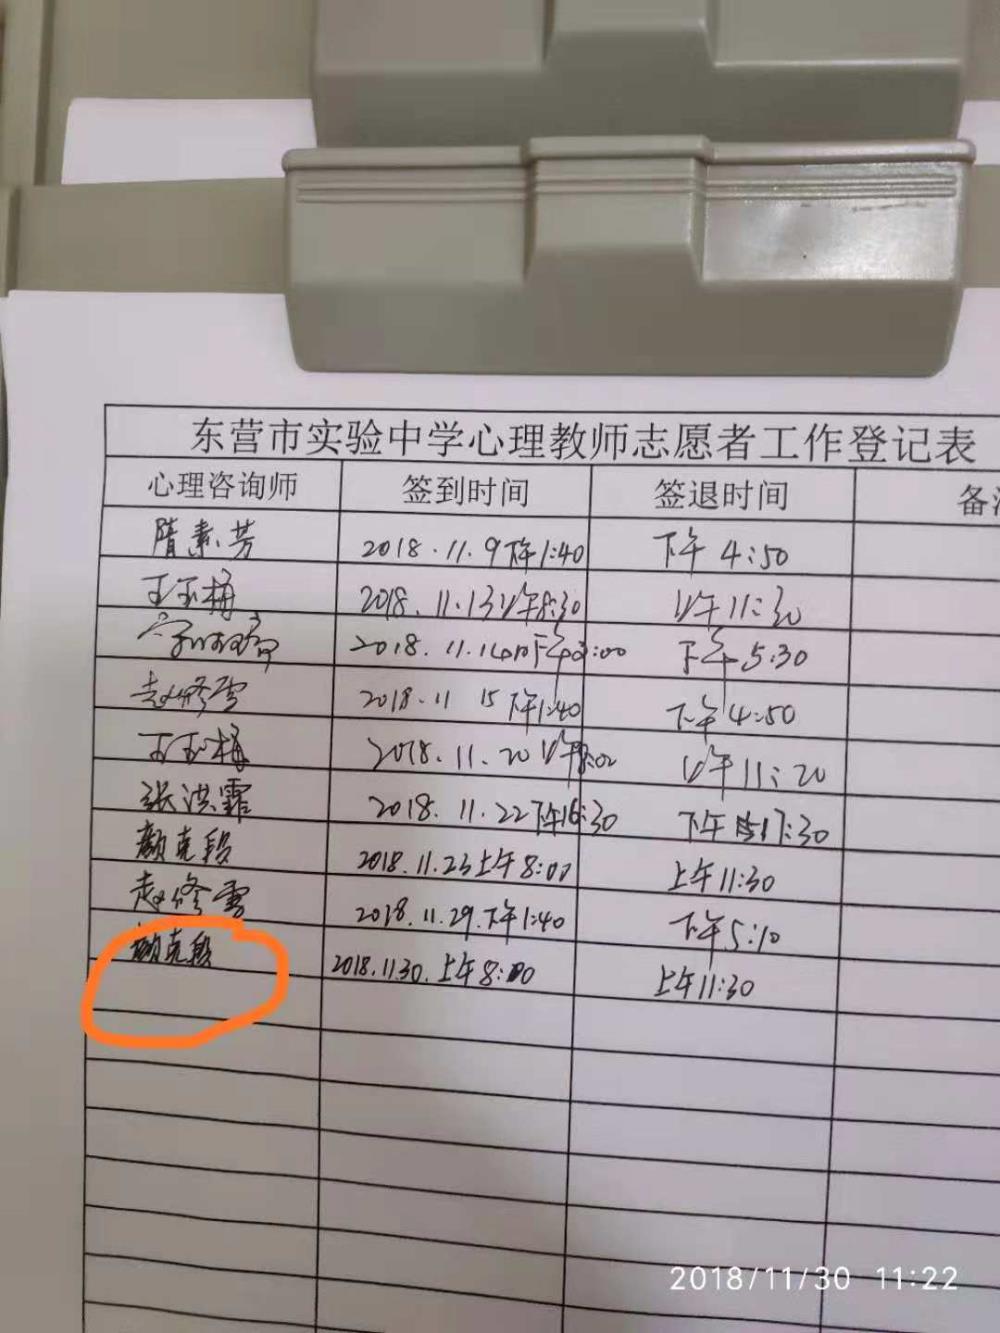 东营市实验中学心理教师志愿者工作登记表
心理咨询师 签到时间 签退时间 备
隋素芳 2018.11.9下午1:40 下午4:50
王玉梅 2018.11.13上午8:30 上午11:30
2018.11.14 下午:00 下午5:30
赵修雪 2018.11 15下午1:40 下午4:50
王玉梅 2018.11.20上午8:00 上午11:20
张洪霏 2018.11.22下午16:30 下午17:30
颜克段 2018.11.23上午8:00 上午11:30
赵修雪 2018.11.29.下午1:40 下午5:10
颜克段 2018.11.30.上午8:00 上午11:30
2018/11/30 11:22